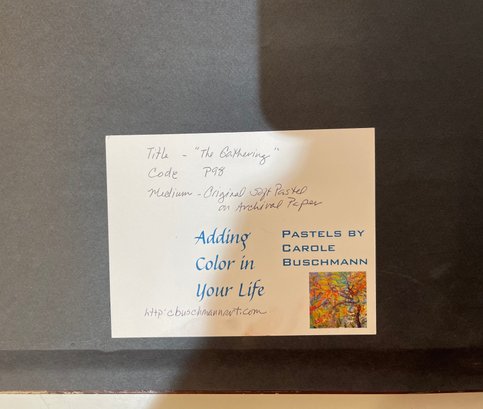 Title - "The Gathering"
Code P98
Medium - Original Soft Pastel
on Archival Paper
Adding
Color in
Your Life
PASTELS BY
CAROLE
BUSCHMANN
http:cbuschmannart.com